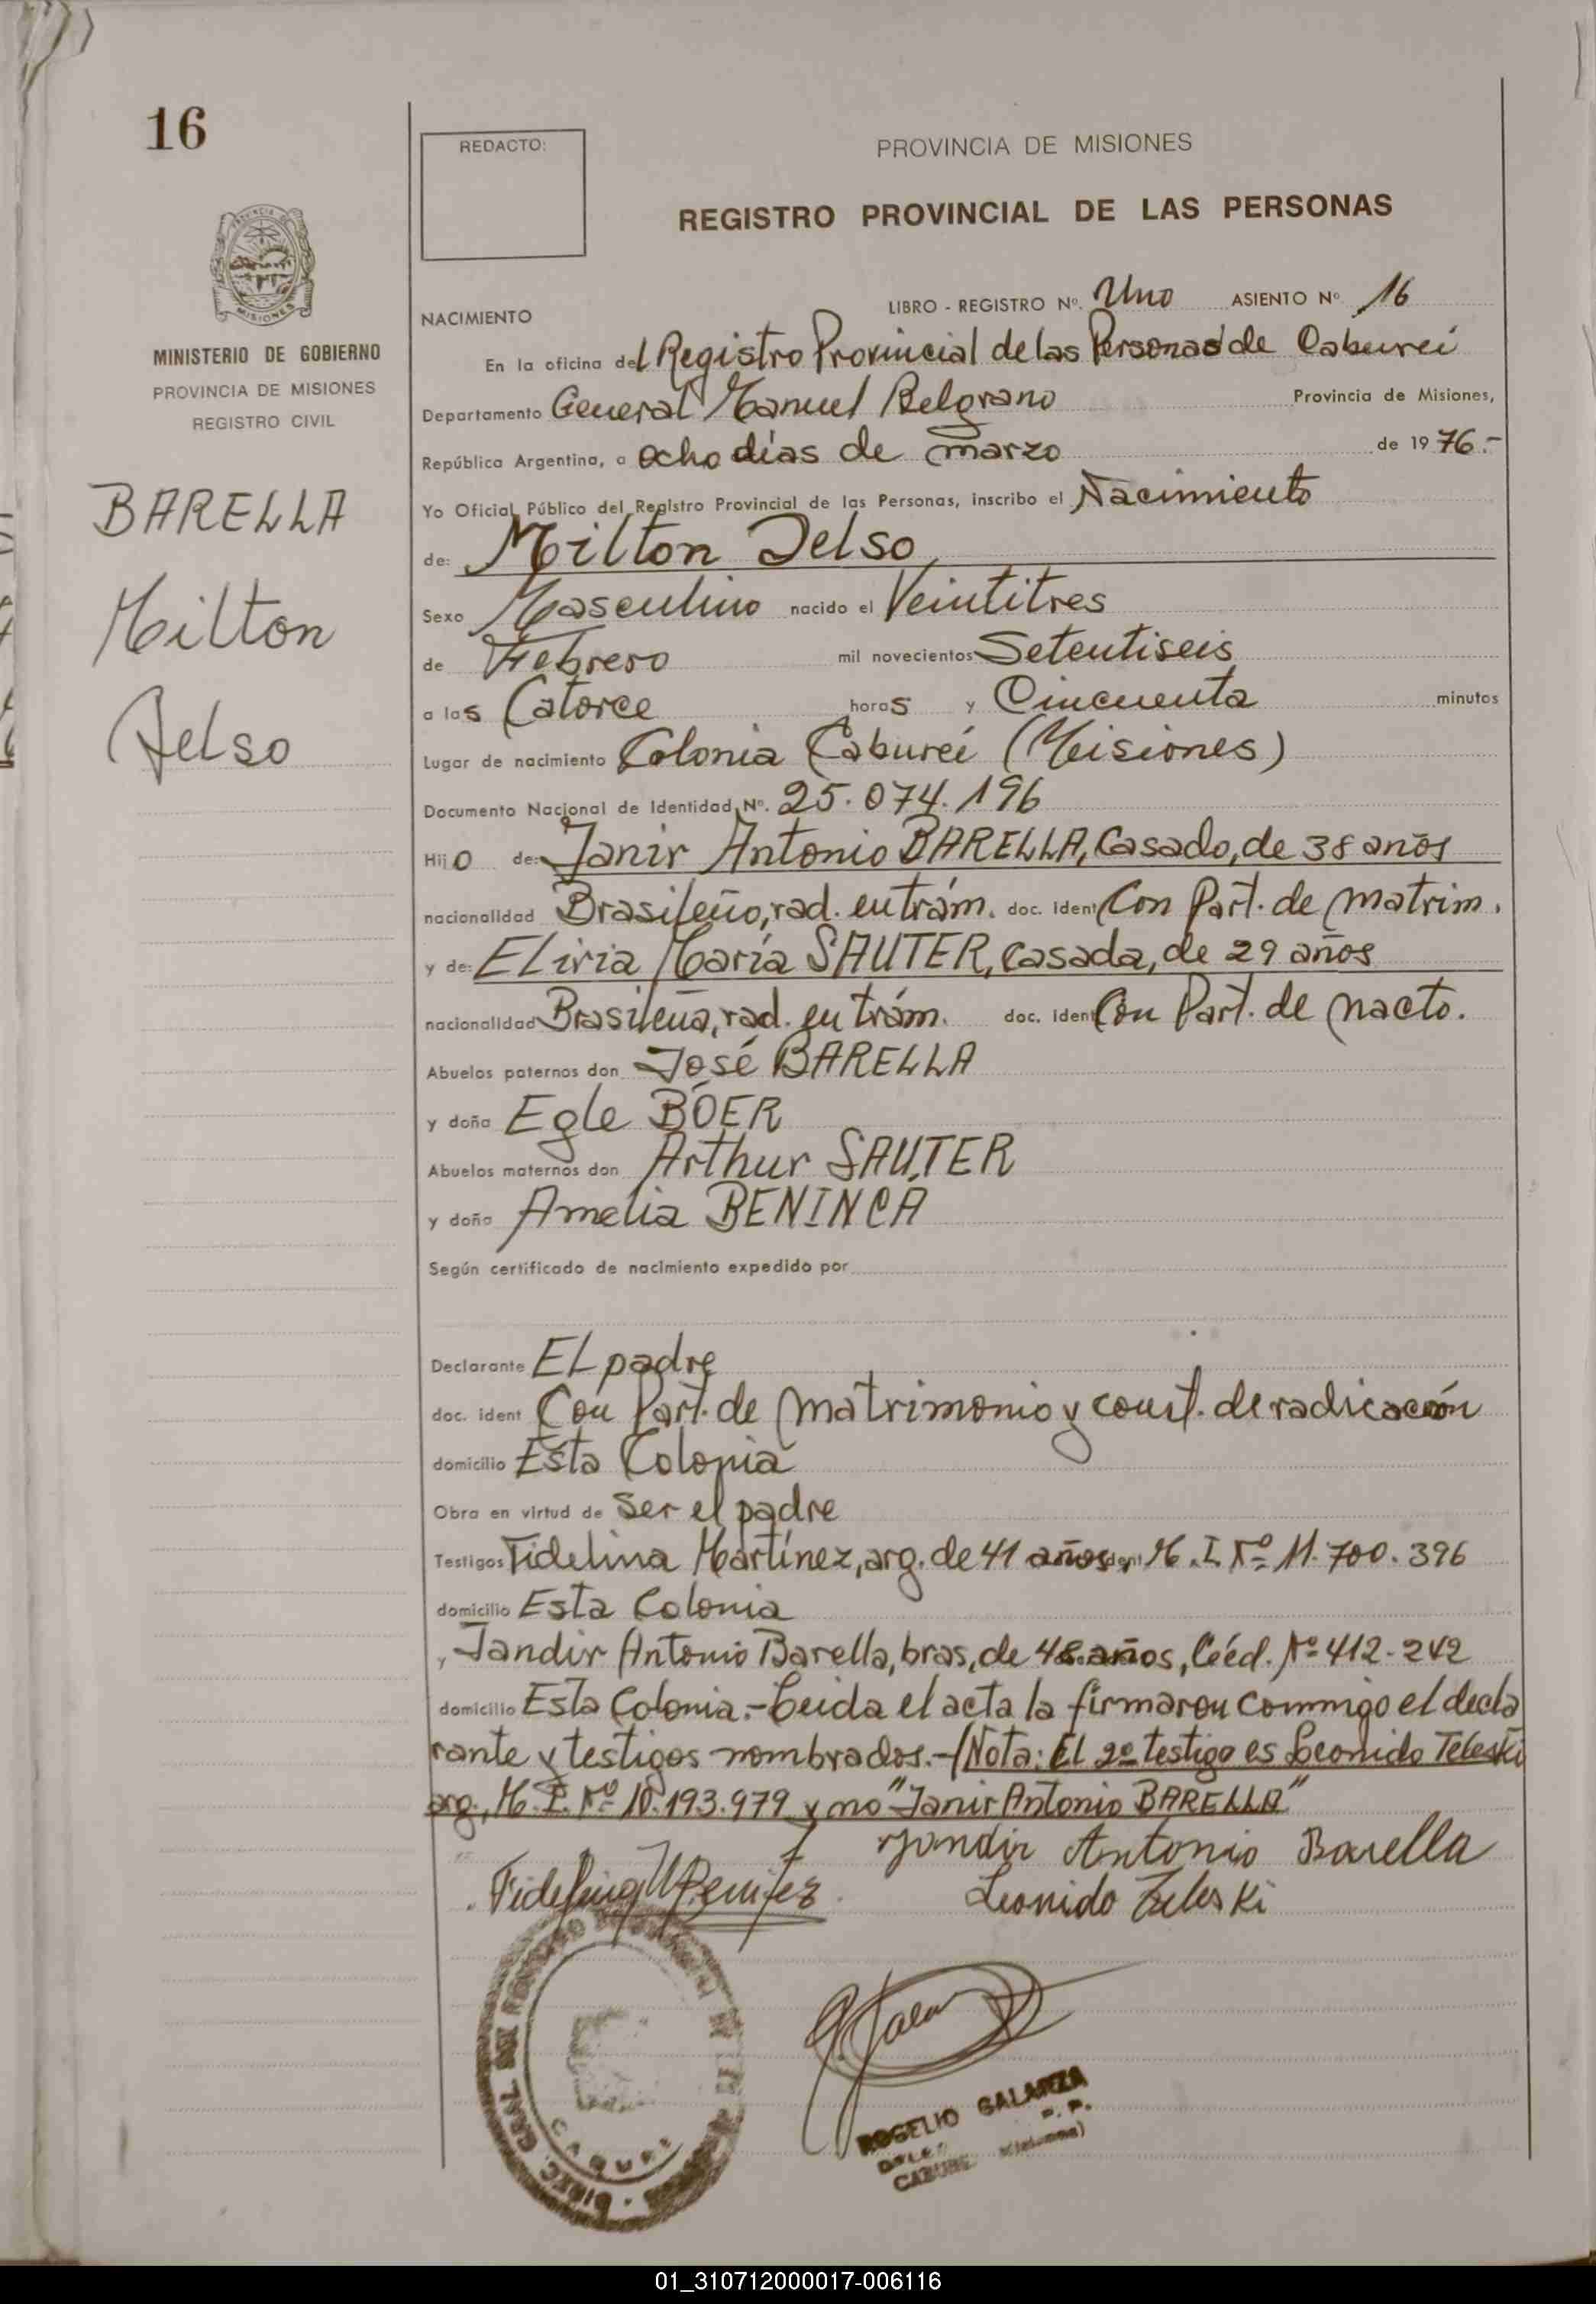 16
REDACTO:
PROVINCIA DE MISIONES
REGISTRO PROVINCIAL DE LAS PERSONAS
MINISTERIO DE GOBIERNO
PROVINCIA DE MISIONES
REGISTRO CIVIL
BARELLA
Milton
Delso
LIBRO - REGISTRO Nº. Uno ASIENTO Nº 16
NACIMIENTO
En la oficina del Registro Provincial de las Personas de Cabureí
Departamento General Manuel Belgrano Provincia de Misiones,
República Argentina, a ocho días de marzo de 1976.-
Yo Oficial Público del Registro Provincial de las Personas, inscribo el Nacimiento
de: Milton Delso
Sexo Masculino nacido el Veintitres
de Febrero mil novecientos Setentiseis
a las Catorce horas y Cincuenta minutos
Lugar de nacimiento Colonia Cabureí (Misiones)
Documento Nacional de Identidad Nº. 25.074.196
Hijo de: Janir Antonio BARELLA, Casado, de 38 años
nacionalidad Brasileño, rad. en trám. doc. ident Con Part. de matrim.
y de: Eliria María SAUTER, casada, de 29 años
nacionalidad Brasileña, rad. en trám. doc. ident Con Part. de nacto.
Abuelos paternos don José BARELLA
y doña Egle BÓER
Abuelos maternos don Arthur SAUTER
y doña Amelia BENINCÁ
Según certificado de nacimiento expedido por
Declarante El padre
doc. ident Con Part. de matrimonio y const. de radicación
domicilio Esta Colonia
Obra en virtud de ser el padre
Testigos Fidelina Martínez, arg. de 41 años, M.I. Nº 11.700.396
domicilio Esta Colonia
y Jandir Antonio Barella, bras, de 48 años, Céd. Nº 412.242
domicilio Esta Colonia.- Leida el acta la firmaron commigo el decla
rante y testigos nombrados.- (Nota: El 2º testigo es Leonido Teleski
arg., M.I. Nº 10.193.979 y no "Janir Antonio BARELLA"
Jandir Antonio Barella
Leonido Zeleski
ROGELIO GALARZA